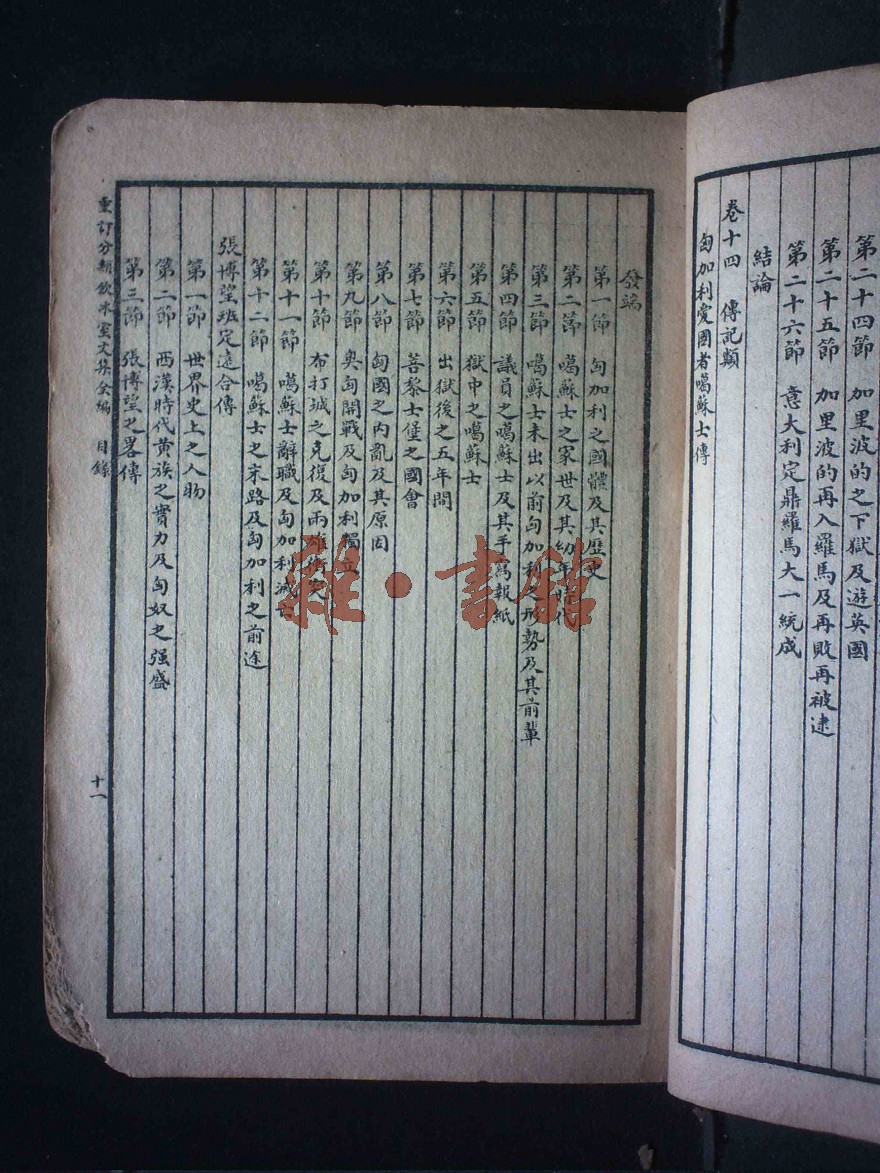 第二十四節　加里波的之下獄及遊英國
第二十五節　加里波的再入羅馬及再敗再被逮
第二十六節　意大利定鼎羅馬大一統成
結論
卷十四　傳記類
匈加利愛國者噶蘇士傳
發端
第一節　匈加利之國體及其歷史
第二節　噶蘇士之家世及其幼年時代
第三節　噶蘇士未出以前匈加利之形勢及其前輩
第四節　議員之噶蘇士及其手寫報紙
第五節　獄中之噶蘇士
第六節　出獄後之五年間
第七節　菩黎士堡之國會
第八節　匈國之內亂及其原因
第九節　奧匈開戰及匈加利獨立
第十節　布打城之克復及兩雄衝突
第十一節　噶蘇士辭職及匈加利滅亡
第十二節　噶蘇士之末路及匈加利之前途
張博望班定遠合傳
第一節　世界史上之人物
第二節　西漢時代黃族之實力及匈奴之强盛
第三節　張博望之畧傳
重訂分類飲冰室文集全編　目錄
十一
雜·書館